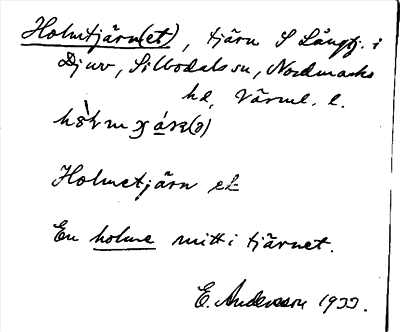 Holmtjärn(et), tjärn S Långtj. i
Djuv, Sillbodals sn, Nordmarks
hd, Värml. l.
Holmetjärn et
En holme mitt i tjärnet.
E. Andersson 1933.